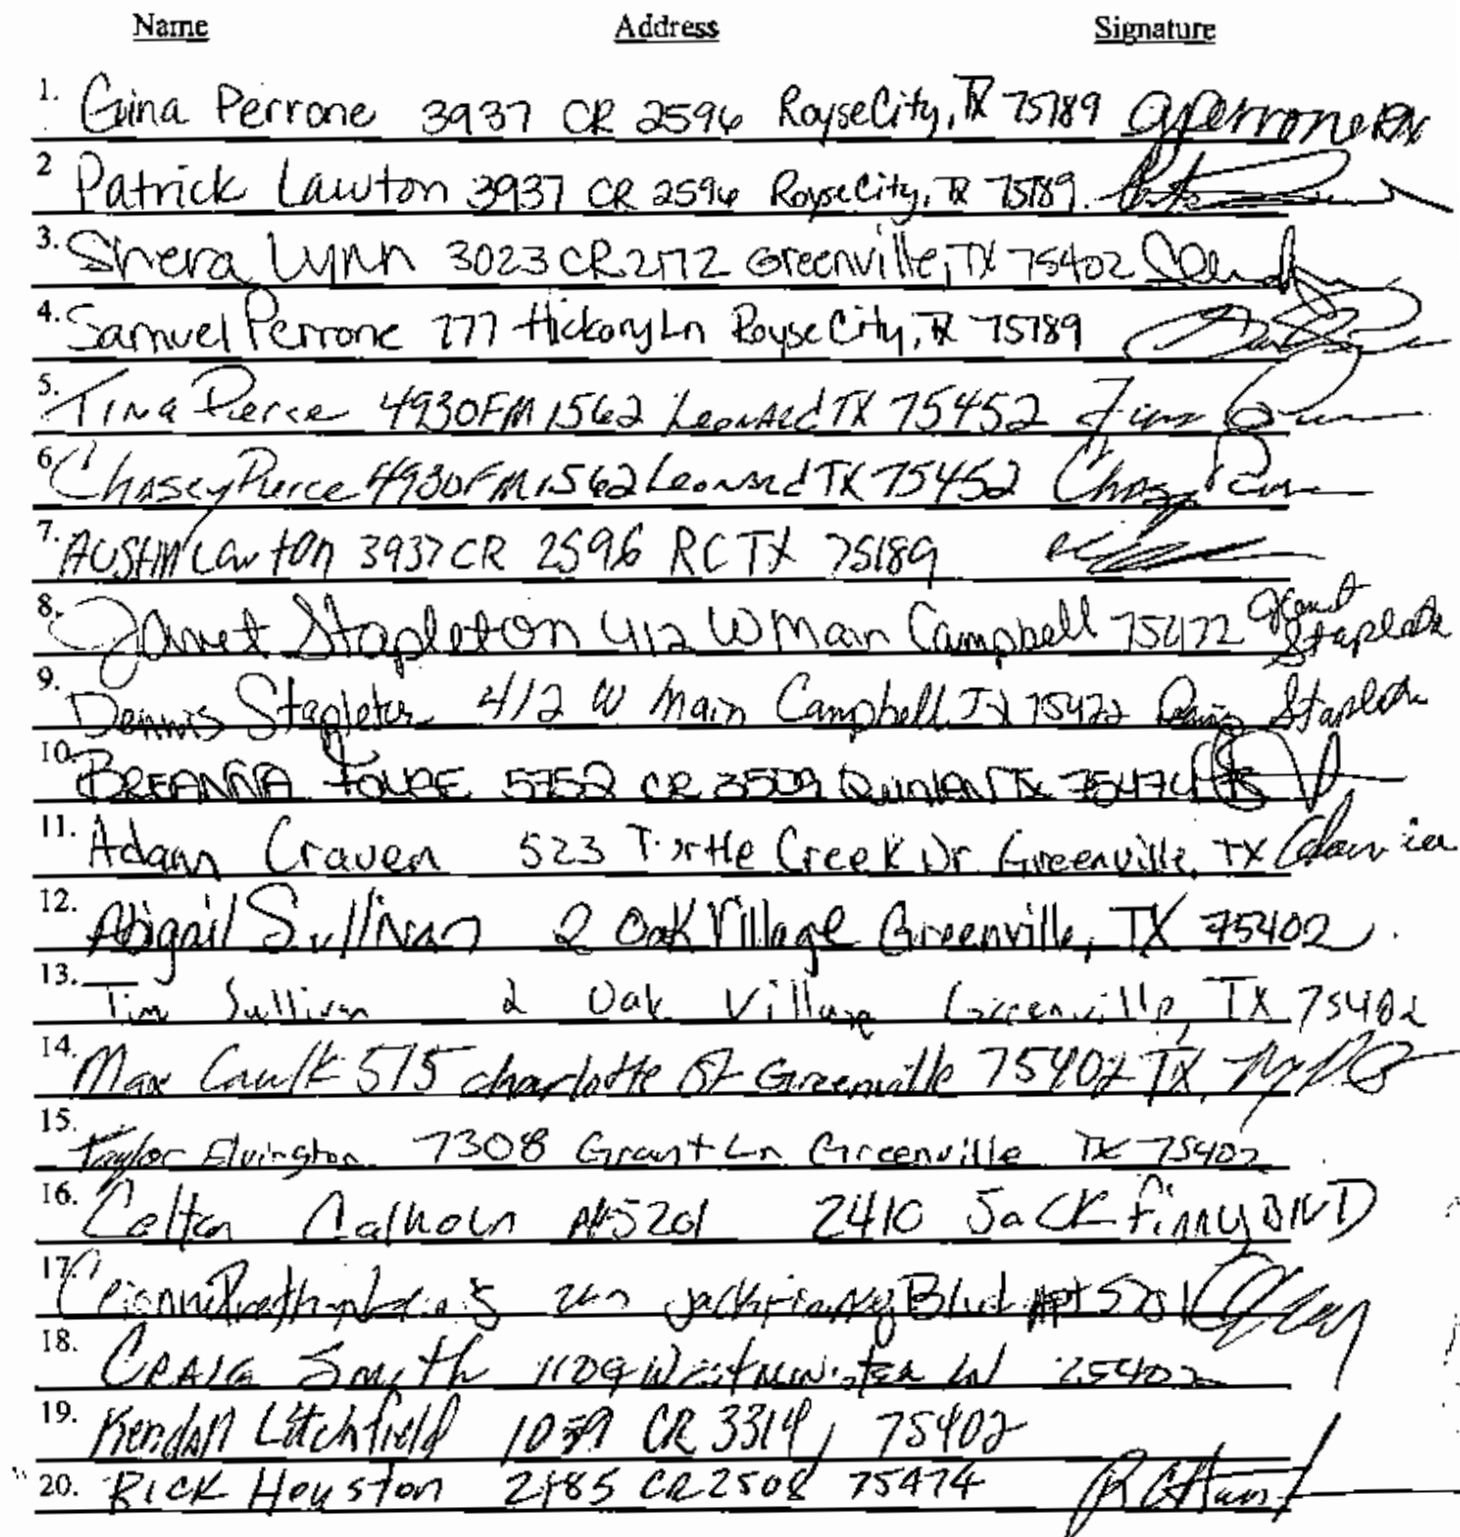 Name Address Signature
1. Gina Perrone 3937 CR 2596 Royse City, TX 75189 GPerrone
2 Patrick Lawton 3937 CR 2596 Royse City, TX 75189.
3. Shera Lynn 3023 CR 2172 Greenville, TX 75402
4. Samuel Perrone 777 Hickory Ln Royse City, TX 75189
5. Tina Pierce 4930 FM 1562 Leonard TX 75452 Tina
6. Chasey Pierce 4930 FM 1562 Leonard TX 75452
7. Austin Lawton 3937 CR 2596 RC TX 75189
8. Janet Stapleton 412 W Main Campbell 75422 Janet Stapleton
9. Dennis Stapleton 412 W Main Campbell TX 75422 Stapleton
10. BREANNA 5752 CR 3509 Quinlan TX 75474
11. Adam Craven 523 Turtle Creek Dr. Greenville, TX
12. Abigail Sullivan 2 Oak Village Greenville, TX 75402.
13. Tim Sullivan 2 Oak Village Greenville, TX 75402
14. Max Caulk 515 charlotte St Greenville 75402 TX
15. Taylor Elvington 7308 Grant Ln Greenville TX 75402
16. Colton Calhoun Apt 5201 2410 Jack Finny BLVD
17. Jack Finney Blvd Apt 5201
18. CRAIG Smith 1109 Westminister LN 75402
19. Kendall Litchfield CR 3314, 75402
20. RICK Houston 2485 CR 2508 75474